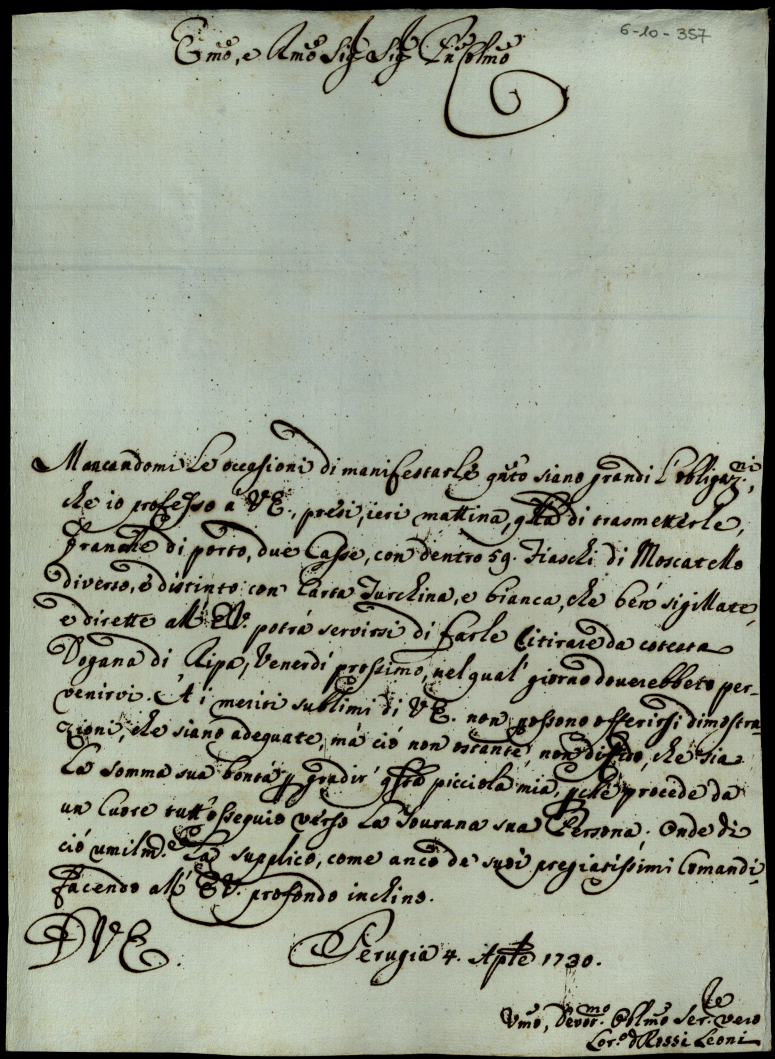 6-10-357
Emo, e Rmo Sig Sig Pne Colmo
Mancandomi le occasioni di manifestarle qnto siano grandi l'obligazni,
che io professo á VE., presi, ieri mattina, qlla di trasmetterle,
franche di porto, due Casse, con dentro 59. Fiaschi di Moscatello
diverso, e distinto con Carta Turchina, e bianca, che ben' sigillate,
e dirette all' EV. potrá servirsi di farle ritirare da cotesta
Dogana di Ripa, Venerdí prossimo, nel qual' giorno doverebbero per-
venirvi. A' i meriti sublimi di VE. non possono offerirsi dimostra-
zioni, che siano adeguate, má ció non ostante, non diffido, che sia
la somma sua bontá p gradir' qsta picciola mia, pche procede da
un Cuore tutt'ossequio verso la Sourana sua Persona. Onde di
ció umilmte. La supplico, come anco de suoi pregiatissimi Comandi,
facendo all' EV. profondo inchino.
D VE.
Perugia 4. Aple 1730.
Vmo, Devotmo. Oblmo Serre. vero
Lor.o d Rossi Leoni